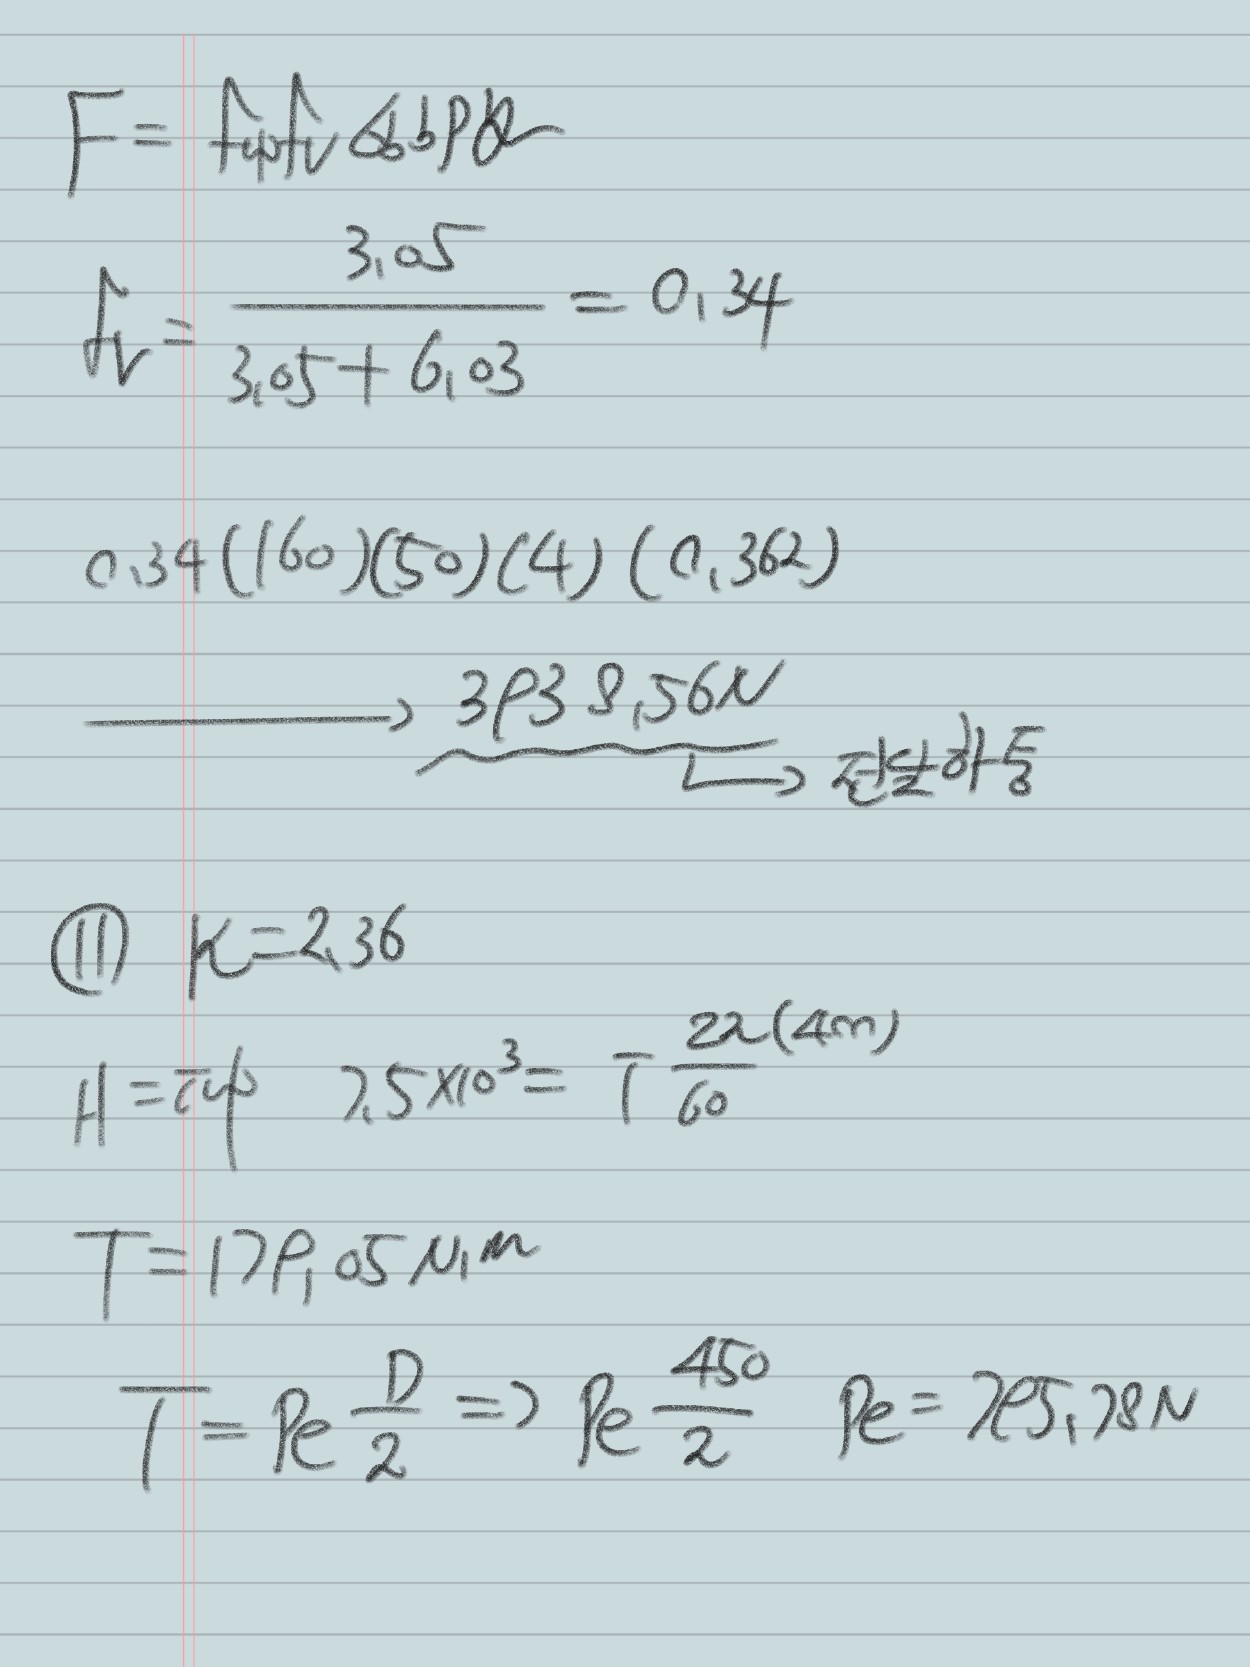 F = fw fv σb b p y
fv = 3.05 / (3.05 + 6.03) = 0.34
0.34 (160)(50)(4) (0.362)
→ 3938.56N
→ 전달하중
⑪ K = 2.36
H = Tω 7.5×10³ = T 2π(400) / 60
T = 179.05 N.m
T = Pe D/2 => Pe 450/2 Pe = 795.78N